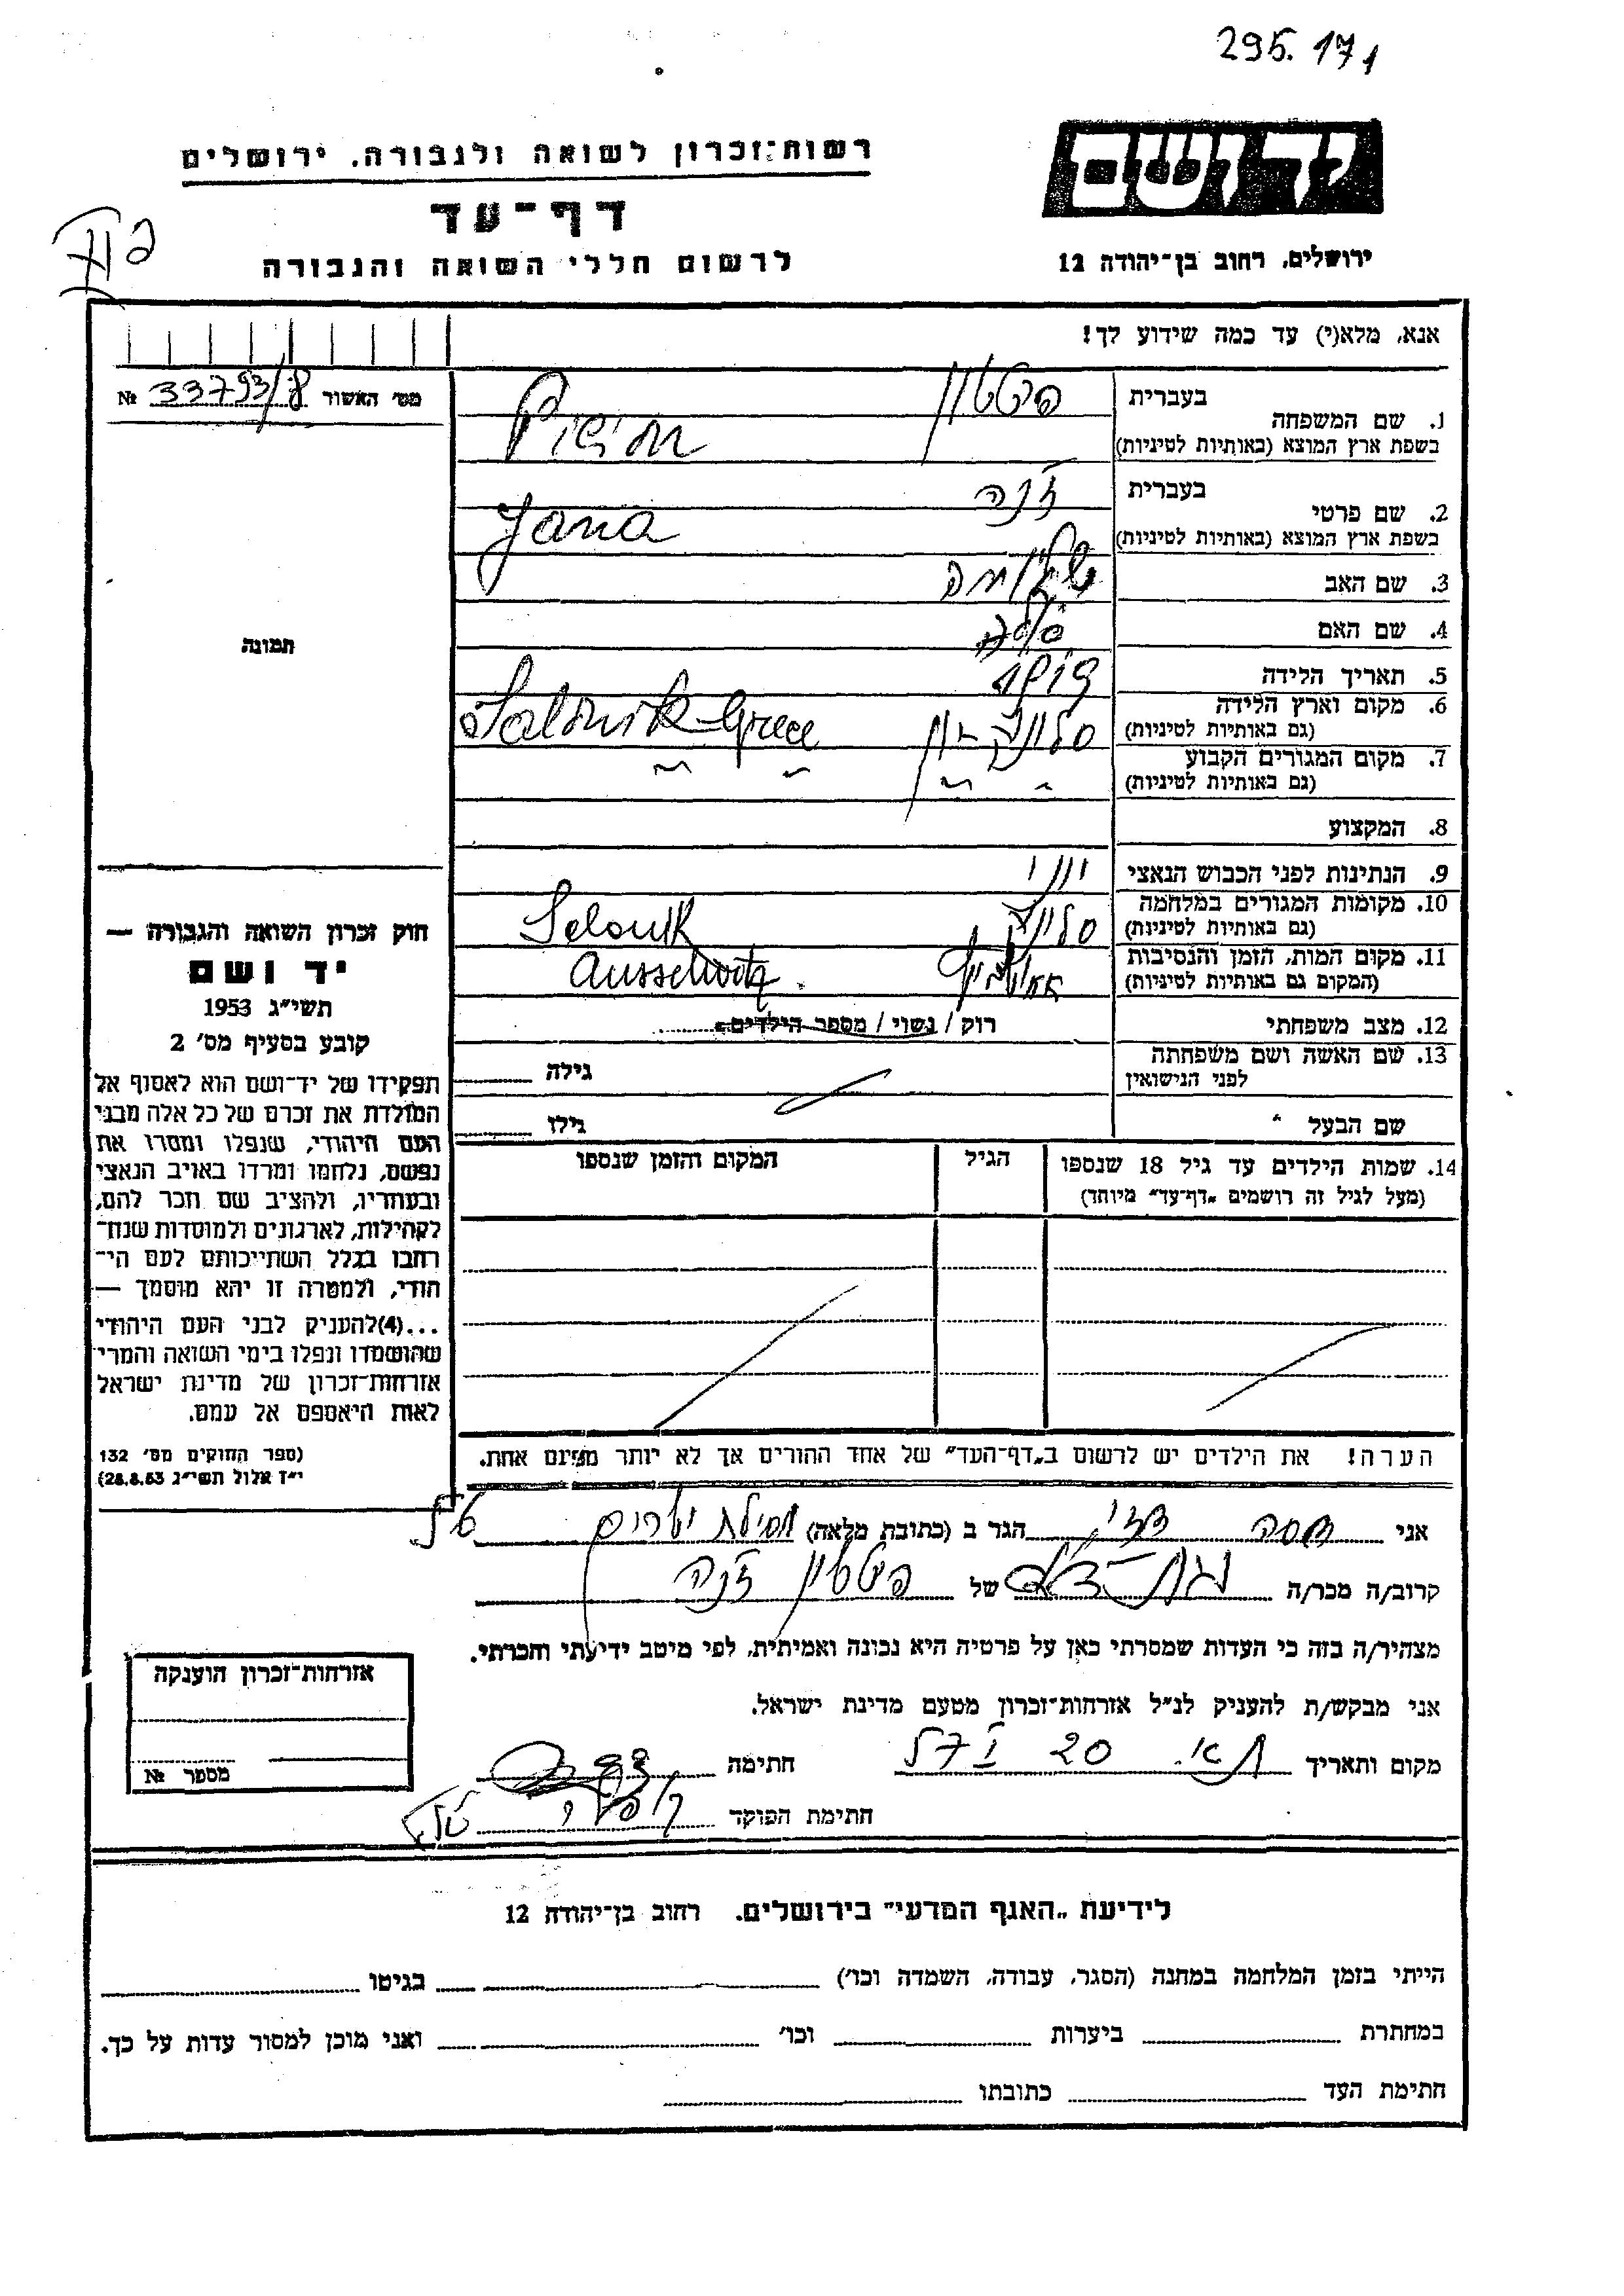 295.17
יד ושם
רשות־זכרון לשואה ולגבורה, ירושלים
דף־עד
לרשום חללי השואה והגבורה
ירושלים, רחוב בן־יהודה 12
אנא, מלא(י) עד כמה שידוע לך!
מס׳ האשור № 33793/8
1. שם המשפחה
בעברית
בשפת ארץ המוצא (באותיות לטיניות)
2. שם פרטי
בעברית
בשפת ארץ המוצא (באותיות לטיניות)
Jana
3. שם האב
4. שם האם
5. תאריך הלידה
6. מקום וארץ הלידה
(גם באותיות לטיניות)
סלוניקי יון Salonik-Greece
7. מקום המגורים הקבוע
(גם באותיות לטיניות)
8. המקצוע
9. הנתינות לפני הכבוש הנאצי יוני
10. מקומות המגורים במלחמה
(גם באותיות לטיניות)
Selonik
11. מקום המות, הזמן והנסיבות
(המקום גם באותיות לטיניות)
Ausschwitz
12. מצב משפחתי רוק / נשוי / מספר הילדים
13. שם האשה ושם משפחתה
לפני הנישואין
גילה
שם הבעל "
גילו
14. שמות הילדים עד גיל 18 שנספו
(מעל לגיל זה רושמים „דף־עד” מיוחד)
הגיל
המקום והזמן שנספו
הערה! את הילדים יש לרשום ב„דף־העד” של אחד ההורים אך לא יותר מפעם אחת.
תמונה
חוק זכרון השואה והגבורה —
יד ושם
תשי״ג 1953
קובע בסעיף מס׳ 2
תפקידו של יד־ושם הוא לאסוף אל
המולדת את זכרם של כל אלה מבני
העם היהודי, שנפלו ומסרו את
נפשם, נלחמו ומרדו באויב הנאצי
ובעוזריו, ולהציב שם וזכר להם,
לקהילות, לארגונים ולמוסדות שנח־
רבו בגלל השתייכותם לעם הי־
הודי, ולמטרה זו יהא מוסמך —
...(4)להעניק לבני העם היהודי
שהושמדו ונפלו בימי השואה והמרי
אזרחות־זכרון של מדינת ישראל
לאות היאספם אל עמם.
(ספר החוקים מס׳ 132
י״ז אלול תשי״ג 28.8.53)
אני הגר ב (כתובת מלאה)
קרוב/ה מכר/ה של
מצהיר/ה בזה כי העדות שמסרתי כאן על פרטיה היא נכונה ואמיתית, לפי מיטב ידיעתי והכרתי.
אני מבקש/ת להעניק לנ״ל אזרחות־זכרון מטעם מדינת ישראל.
מקום ותאריך חתימה
חתימת הפוקד
אזרחות־זכרון הוענקה
מספר №
לידיעת „האגף המדעי” בירושלים, רחוב בן־יהודה 12
הייתי בזמן המלחמה במחנה (הסגר, עבודה, השמדה וכו׳) בגיטו
במחתרת ביערות וכו׳ ואני מוכן למסור עדות על כך.
חתימת העד כתובתו